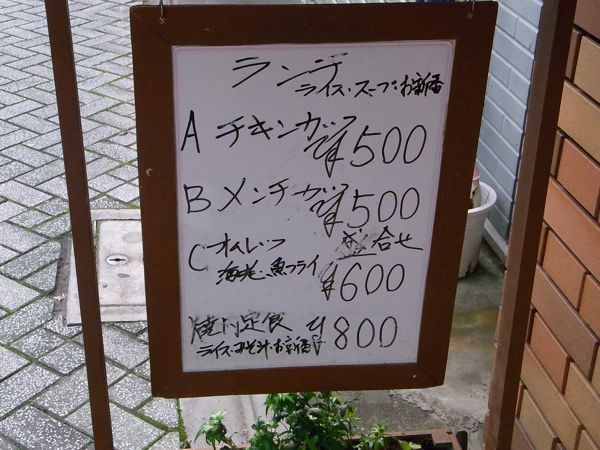 ランチ
ライス・スープ・お新香
A チキンカツ ¥500
B メンチカツ ¥500
C オムレツ 盛合せ
海老・魚フライ ¥600
焼肉定食 ¥800
ライス・みそ汁・お新香